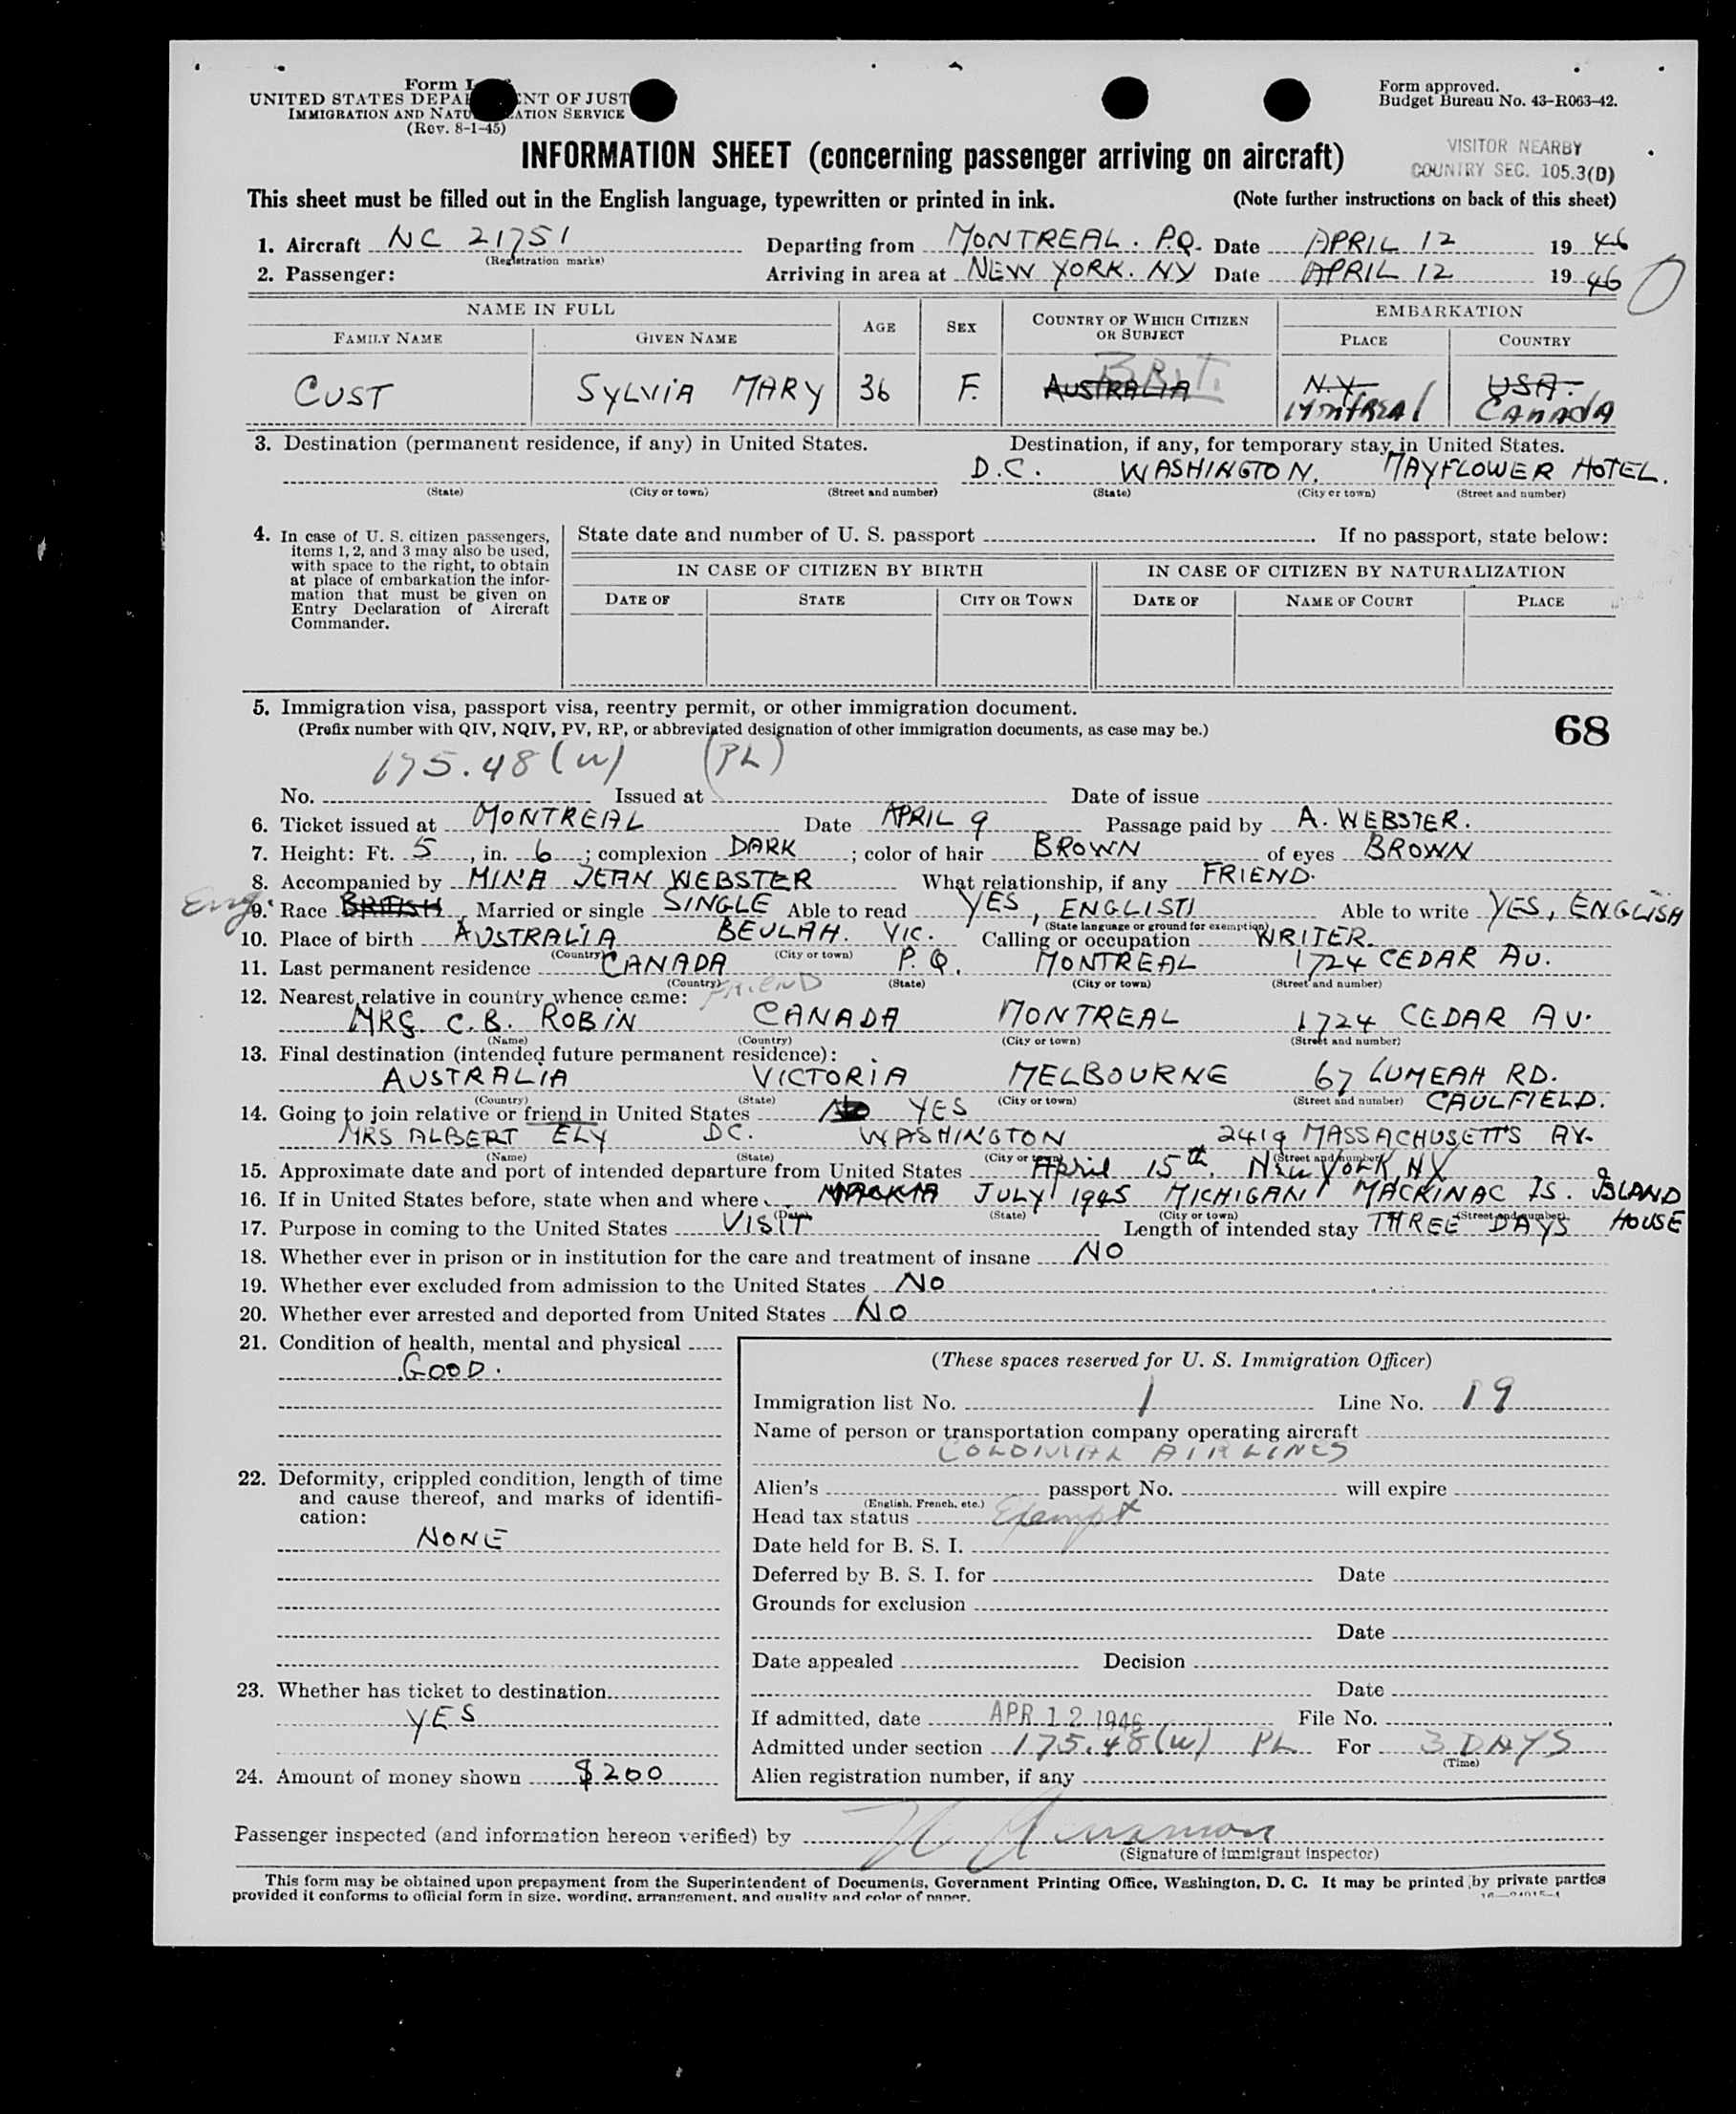 Form I
UNITED STATES DEPA NT OF JUST
IMMIGRATION AND NATU ATION SERVICE
(Rev. 8-1-45)
Form approved.
Budget Bureau No. 43-R063-42.
INFORMATION SHEET (concerning passenger arriving on aircraft)
VISITOR NEARBY
COUNTRY SEC. 105.3(D)
This sheet must be filled out in the English language, typewritten or printed in ink. (Note further instructions on back of this sheet)
1. Aircraft NC 21751 Departing from MONTREAL. P.Q. Date APRIL 12 19 46
(Registration marks)
2. Passenger: Arriving in area at NEW YORK. NY Date APRIL 12 19 46
NAME IN FULL AGE SEX COUNTRY OF WHICH CITIZEN OR SUBJECT EMBARKATION
FAMILY NAME GIVEN NAME PLACE COUNTRY
BRIT.
CUST SYLVIA MARY 36 F. AUSTRALIA N.Y. USA.
Montreal CANADA
3. Destination (permanent residence, if any) in United States. Destination, if any, for temporary stay in United States.
D.C. WASHINGTON. MAYFLOWER HOTEL.
(State) (City or town) (Street and number) (State) (City or town) (Street and number)
4. In case of U. S. citizen passengers, items 1, 2, and 3 may also be used, with space to the right, to obtain at place of embarkation the information that must be given on Entry Declaration of Aircraft Commander.
State date and number of U. S. passport . If no passport, state below:
IN CASE OF CITIZEN BY BIRTH IN CASE OF CITIZEN BY NATURALIZATION
DATE OF STATE CITY OR TOWN DATE OF NAME OF COURT PLACE
5. Immigration visa, passport visa, reentry permit, or other immigration document.
(Prefix number with QIV, NQIV, PV, RP, or abbreviated designation of other immigration documents, as case may be.)
68
175.48(w) (PL)
No. Issued at Date of issue
6. Ticket issued at MONTREAL Date APRIL 9 Passage paid by A. WEBSTER.
7. Height: Ft. 5, in. 6; complexion DARK; color of hair BROWN of eyes BROWN
8. Accompanied by MINA JEAN WEBSTER What relationship, if any FRIEND.
Eng. 9. Race BRITISH, Married or single SINGLE Able to read YES, ENGLISH Able to write YES, ENGLISH
(State language or ground for exemption)
10. Place of birth AUSTRALIA BEULAH. VIC. Calling or occupation WRITER.
(Country) (City or town)
11. Last permanent residence CANADA P.Q. MONTREAL 1724 CEDAR AV.
(Country) (State) (City or town) (Street and number)
12. Nearest relative in country whence came: FRIEND
MRS. C.B. ROBIN CANADA MONTREAL 1724 CEDAR AV.
(Name) (Country) (City or town) (Street and number)
13. Final destination (intended future permanent residence):
AUSTRALIA VICTORIA MELBOURNE 67 LUMEAH RD.
(Country) (State) (City or town) (Street and number) CAULFIELD.
14. Going to join relative or friend in United States NO YES
MRS ALBERT ELY DC. WASHINGTON 2419 MASSACHUSETTS AV.
(Name) (State) (City or town) (Street and number)
15. Approximate date and port of intended departure from United States April 15th New York, NY
16. If in United States before, state when and where MACKINA JULY 1945 MICHIGAN MACKINAC IS. ISLAND
(Date) (State) (City or town) (Street and number) HOUSE
17. Purpose in coming to the United States VISIT Length of intended stay THREE DAYS
18. Whether ever in prison or in institution for the care and treatment of insane NO
19. Whether ever excluded from admission to the United States NO
20. Whether ever arrested and deported from United States NO
21. Condition of health, mental and physical
GOOD.
22. Deformity, crippled condition, length of time and cause thereof, and marks of identification:
NONE
23. Whether has ticket to destination
YES
24. Amount of money shown $200
(These spaces reserved for U. S. Immigration Officer)
Immigration list No. 1 Line No. 19
Name of person or transportation company operating aircraft
COLONIAL AIRLINES
Alien's passport No. will expire
(English, French, etc.)
Head tax status Exempt
Date held for B. S. I.
Deferred by B. S. I. for Date
Grounds for exclusion
Date
Date appealed Decision
Date
If admitted, date APR 12 1946 File No.
Admitted under section 175.48(w) PL For 3 DAYS
(Time)
Alien registration number, if any
Passenger inspected (and information hereon verified) by
(Signature of immigrant inspector)
This form may be obtained upon prepayment from the Superintendent of Documents, Government Printing Office, Washington, D. C. It may be printed by private parties
provided it conforms to official form in size, wording, arrangement, and quality and color of paper.